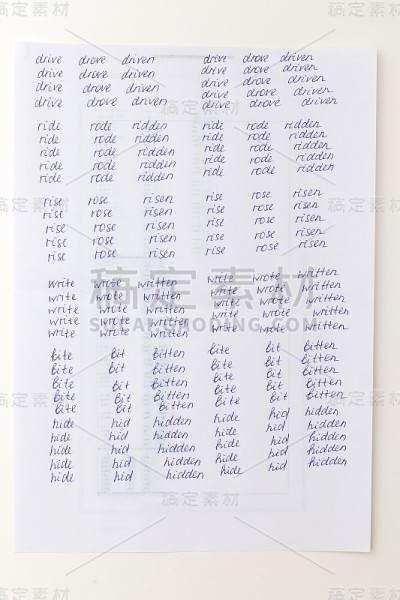 稿定素材 稿定素材 稿定素材
drive drove driven drive drove driven
drive drove driven drive drove driven
drive drove driven drive drove driven
drive drove driven drive drove driven
drive drove driven
稿定素材
ride rode ridden ride rode ridden
ride rode ridden ride rode ridden
ride rode ridden ride rode ridden
ride rode ridden ride rode ridden
ride rode ridden ride rode ridden
rise rose risen rise rose risen
rise rose risen rise rose risen
rise rose risen rise rose risen
rise rose risen rise rose risen
rise rose risen rise rose risen
稿定素材
write wrote written write wrote written
write wrote written write wrote written
write wrote written write wrote written
write wrote written write wrote written
write wrote written write wrote written
SUCAI.GAODING.COM
bite bit bitten bite bit bitten
bite bit bitten bite bit bitten
bite bit bitten bite bit bitten
bite bit bitten bite bit bitten
bite bit bitten bite bit bitten
hide hid hidden hide hid hidden
hide hid hidden hide hid hidden
hide hid hidden hide hid hidden
hide hid hidden hide hid hidden
hide hid hidden hide hid hidden
稿定素材
稿定素材 稿定素材